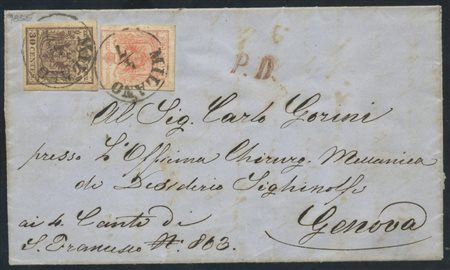 30 CENTES
MILANO
MILANO
P.D.
Al Sig. Carlo Gorini
presso L'Officina Chirurg. Meccanica
di Desiderio Sighinolfi
ai 4. Canti di Genova
S. Francesco N. 803.